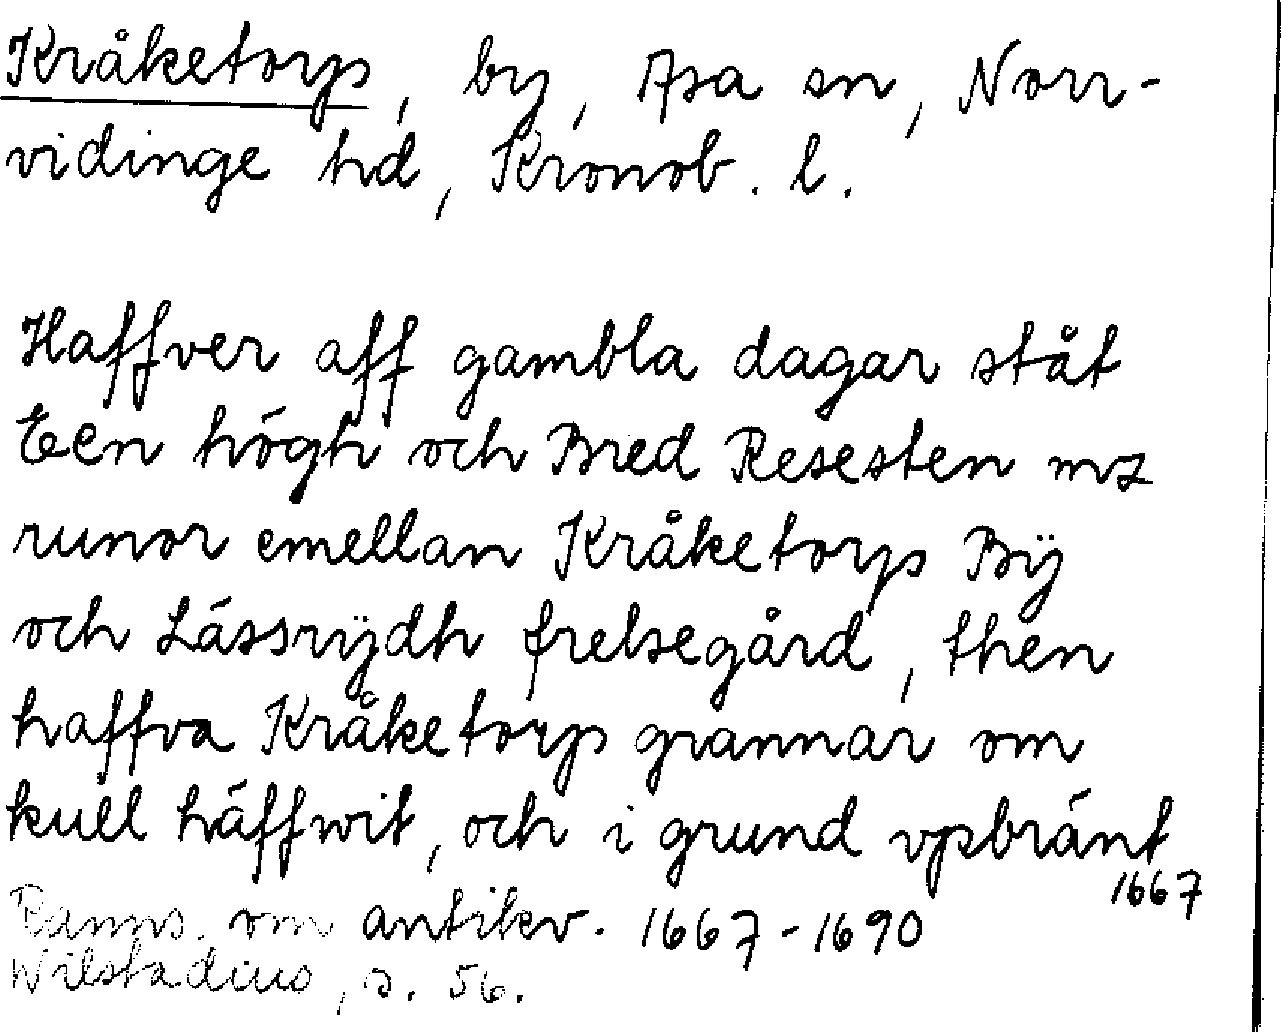 Kråketorp, by, Asa sn, Norr-
vidinge hd, Kronob. l.
Haffver aff gambla dagar ståt
Een högh och Bred Resesten mz
runor emellan Kråketorps Bÿ
och Lássrÿdh frelsegård, then
haffva Kråketorps grannar om
kull háffwit, och i grund vpbránt
1667
Ranns. om antikv. 1667-1690
Wilstadius, s. 56.